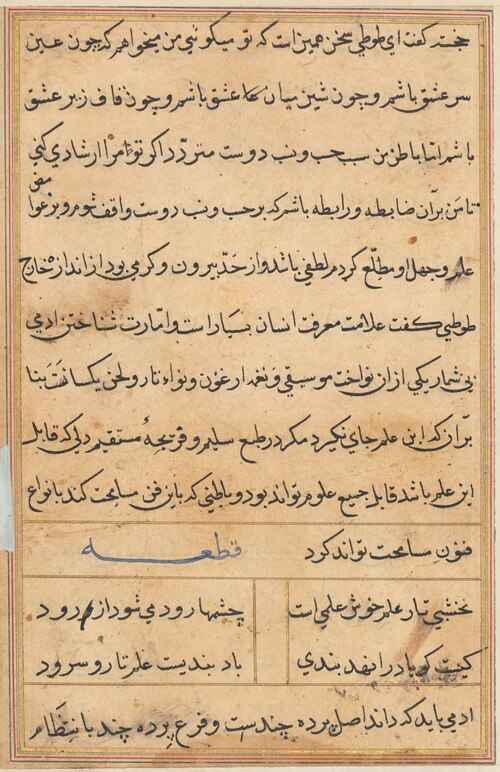 خجسته کفت ای طوطی سخن همین است که تو میکوئی من میخواهم که چون عین
سر عشق باشم و چون شین میان عشق باشم و چون قاف زیر عشق
باشم اما باطن من سبب حب و نسب دوست متردد اکر تو مرا ارشادی کنی
تا من بر آن ضابطه و رابطه باشم که بر حسب و نسب دوست واقف شوم و بر
علم و جهل او مطلع کردم لطفی باشد و از حد بیرون و کرمی بود از اندازه خارج
طوطی کفت علامت معرفت انسان بسیار است و امارت شناختن ادمی
بی شمار یکی از ان نواخت موسیقی و نغمه ارغنون و نواء تار و لحن یکسانست بنا
بر آن که این علم جای نکیرد مکر در طبع سلیم و قریحهٔ مستقیم دلی که قابل
این علم باشد قابل جمیع علوم تواند بود و باطنی که باین فن مسامحت کند بانواع
فنون مسامحت تواند کرد قطعه
نخشبی تار علم خوش علمی است چشمها رود می شود از رود
کیست کو باد را نهد بندی باد بندیست علم تار و سرود
ادمی باید که داند اصل پرده چندست و فرع پرده چند با نتظام